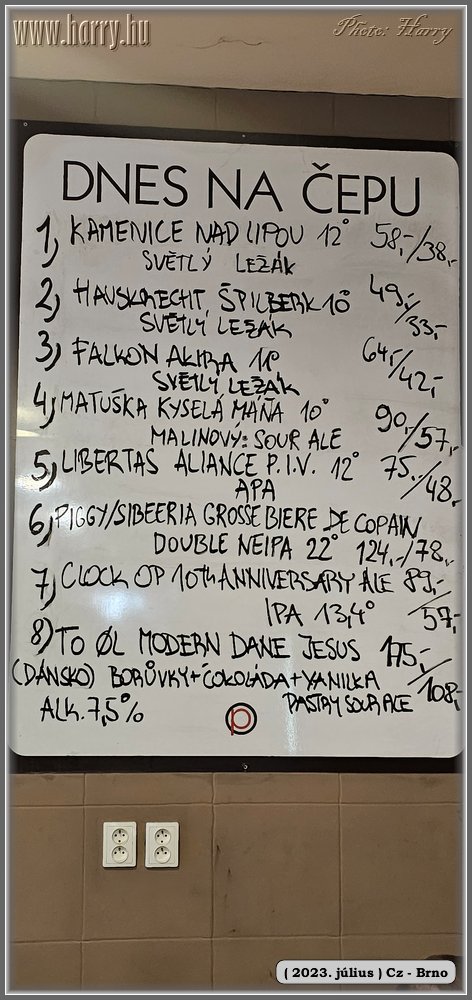 www.harry.hu
Photo: Harry
DNES NA ČEPU
1, KAMENICE NAD LIPOU 12° 58,-/38,-
SVĚTLÝ LEŽÁK
2, HAUSKRECHT, ŠPILBERK 10° 49,-/33,-
SVĚTLÝ LEŽÁK
3, FALKON AKIRA 11° 64,-/42,-
SVĚTLÝ LEŽÁK
4, MATUŠKA KYSELÁ MÁŇA 10° 90,-/57,-
MALINOVÝ SOUR ALE
5, LIBERTAS ALIANCE P.I.V. 12° 75,-/48,-
APA
6, PIGGY/SIBEERIA GROSSE BIERE DE COPAIN
DOUBLE NEIPA 22° 124,-/78,-
7, CLOCK OP 10th ANNIVERSARY ALE 89,-/57,-
IPA 13,4°
8) TO ØL MODERN DANE JESUS 175,-/108,-
(DÁNSKO) BORŮVKY+ČOKOLÁDA+VANILKA
ALK. 7,5% PASTRY SOUR ACE
P
( 2023. július ) Cz - Brno